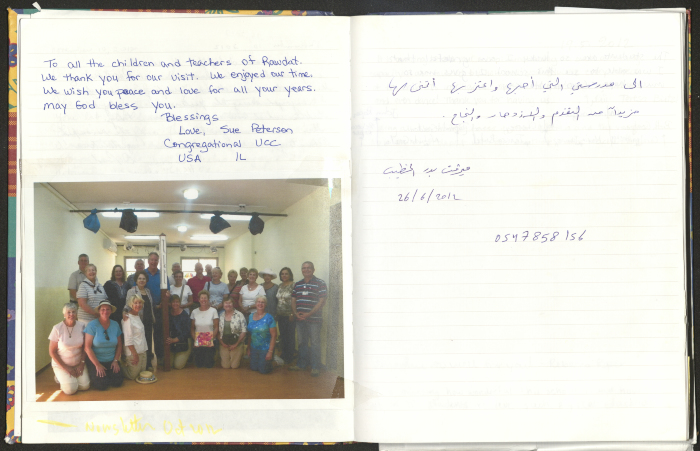 To all the children and teachers of Rawdat.
We thank you for our visit. We enjoyed our time.
We wish you peace and love for all your years.
may God bless you.
Blessings
Love, Sue Peterson
Congregational UCC
USA IL
الى مدرستي التي أحبها واعتز بها أتمنى لها
مزيداً من التقدم والازدهار والنجاح.
بدر الخطيب
26/6/2012
0547858156